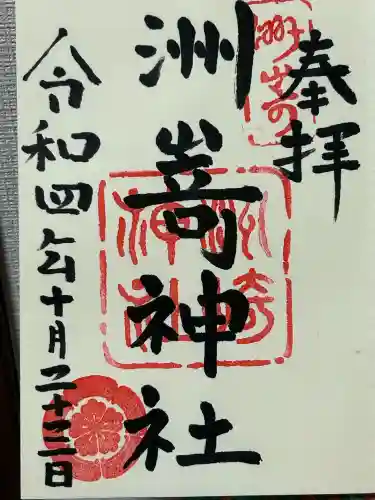 奉拝
洲嵜神社
令和四年十月二十三日